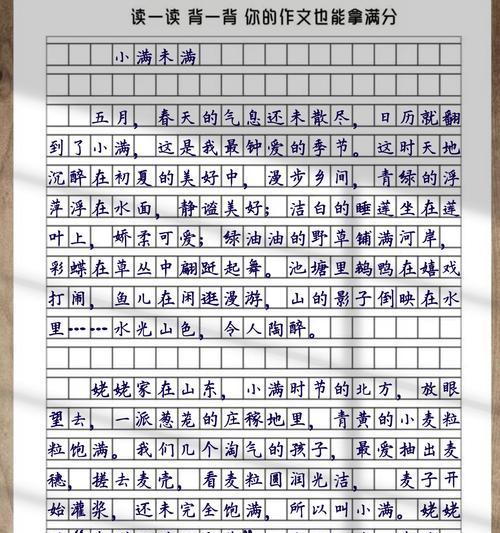 读一读 背一背 你的作文也能拿满分
小满未满
五月，春天的气息还未散尽，日历就翻
到了小满，这是我最钟爱的季节。这时天地
沉醉在初夏的美好中，漫步乡间，青绿的浮
萍浮在水面，静谧美好；洁白的睡莲坐在莲
叶上，娇柔可爱；绿油油的野草铺满河岸，
彩蝶在草丛中翩跹起舞。池塘里鸭鸭在嬉戏
打闹，鱼儿在闲逛漫游，山的影子倒映在水
里……水光山色，令人陶醉。
姥姥家在山东，小满时节的北方，放眼
望去，一派葱茏的庄稼地里，青黄的小麦粒
粒饱满。我们几个淘气的孩子，最爱抽出麦
穗，搓去麦壳，看麦粒圆润光洁，麦子开
始灌浆，还未完全饱满，所以叫小满。姥姥